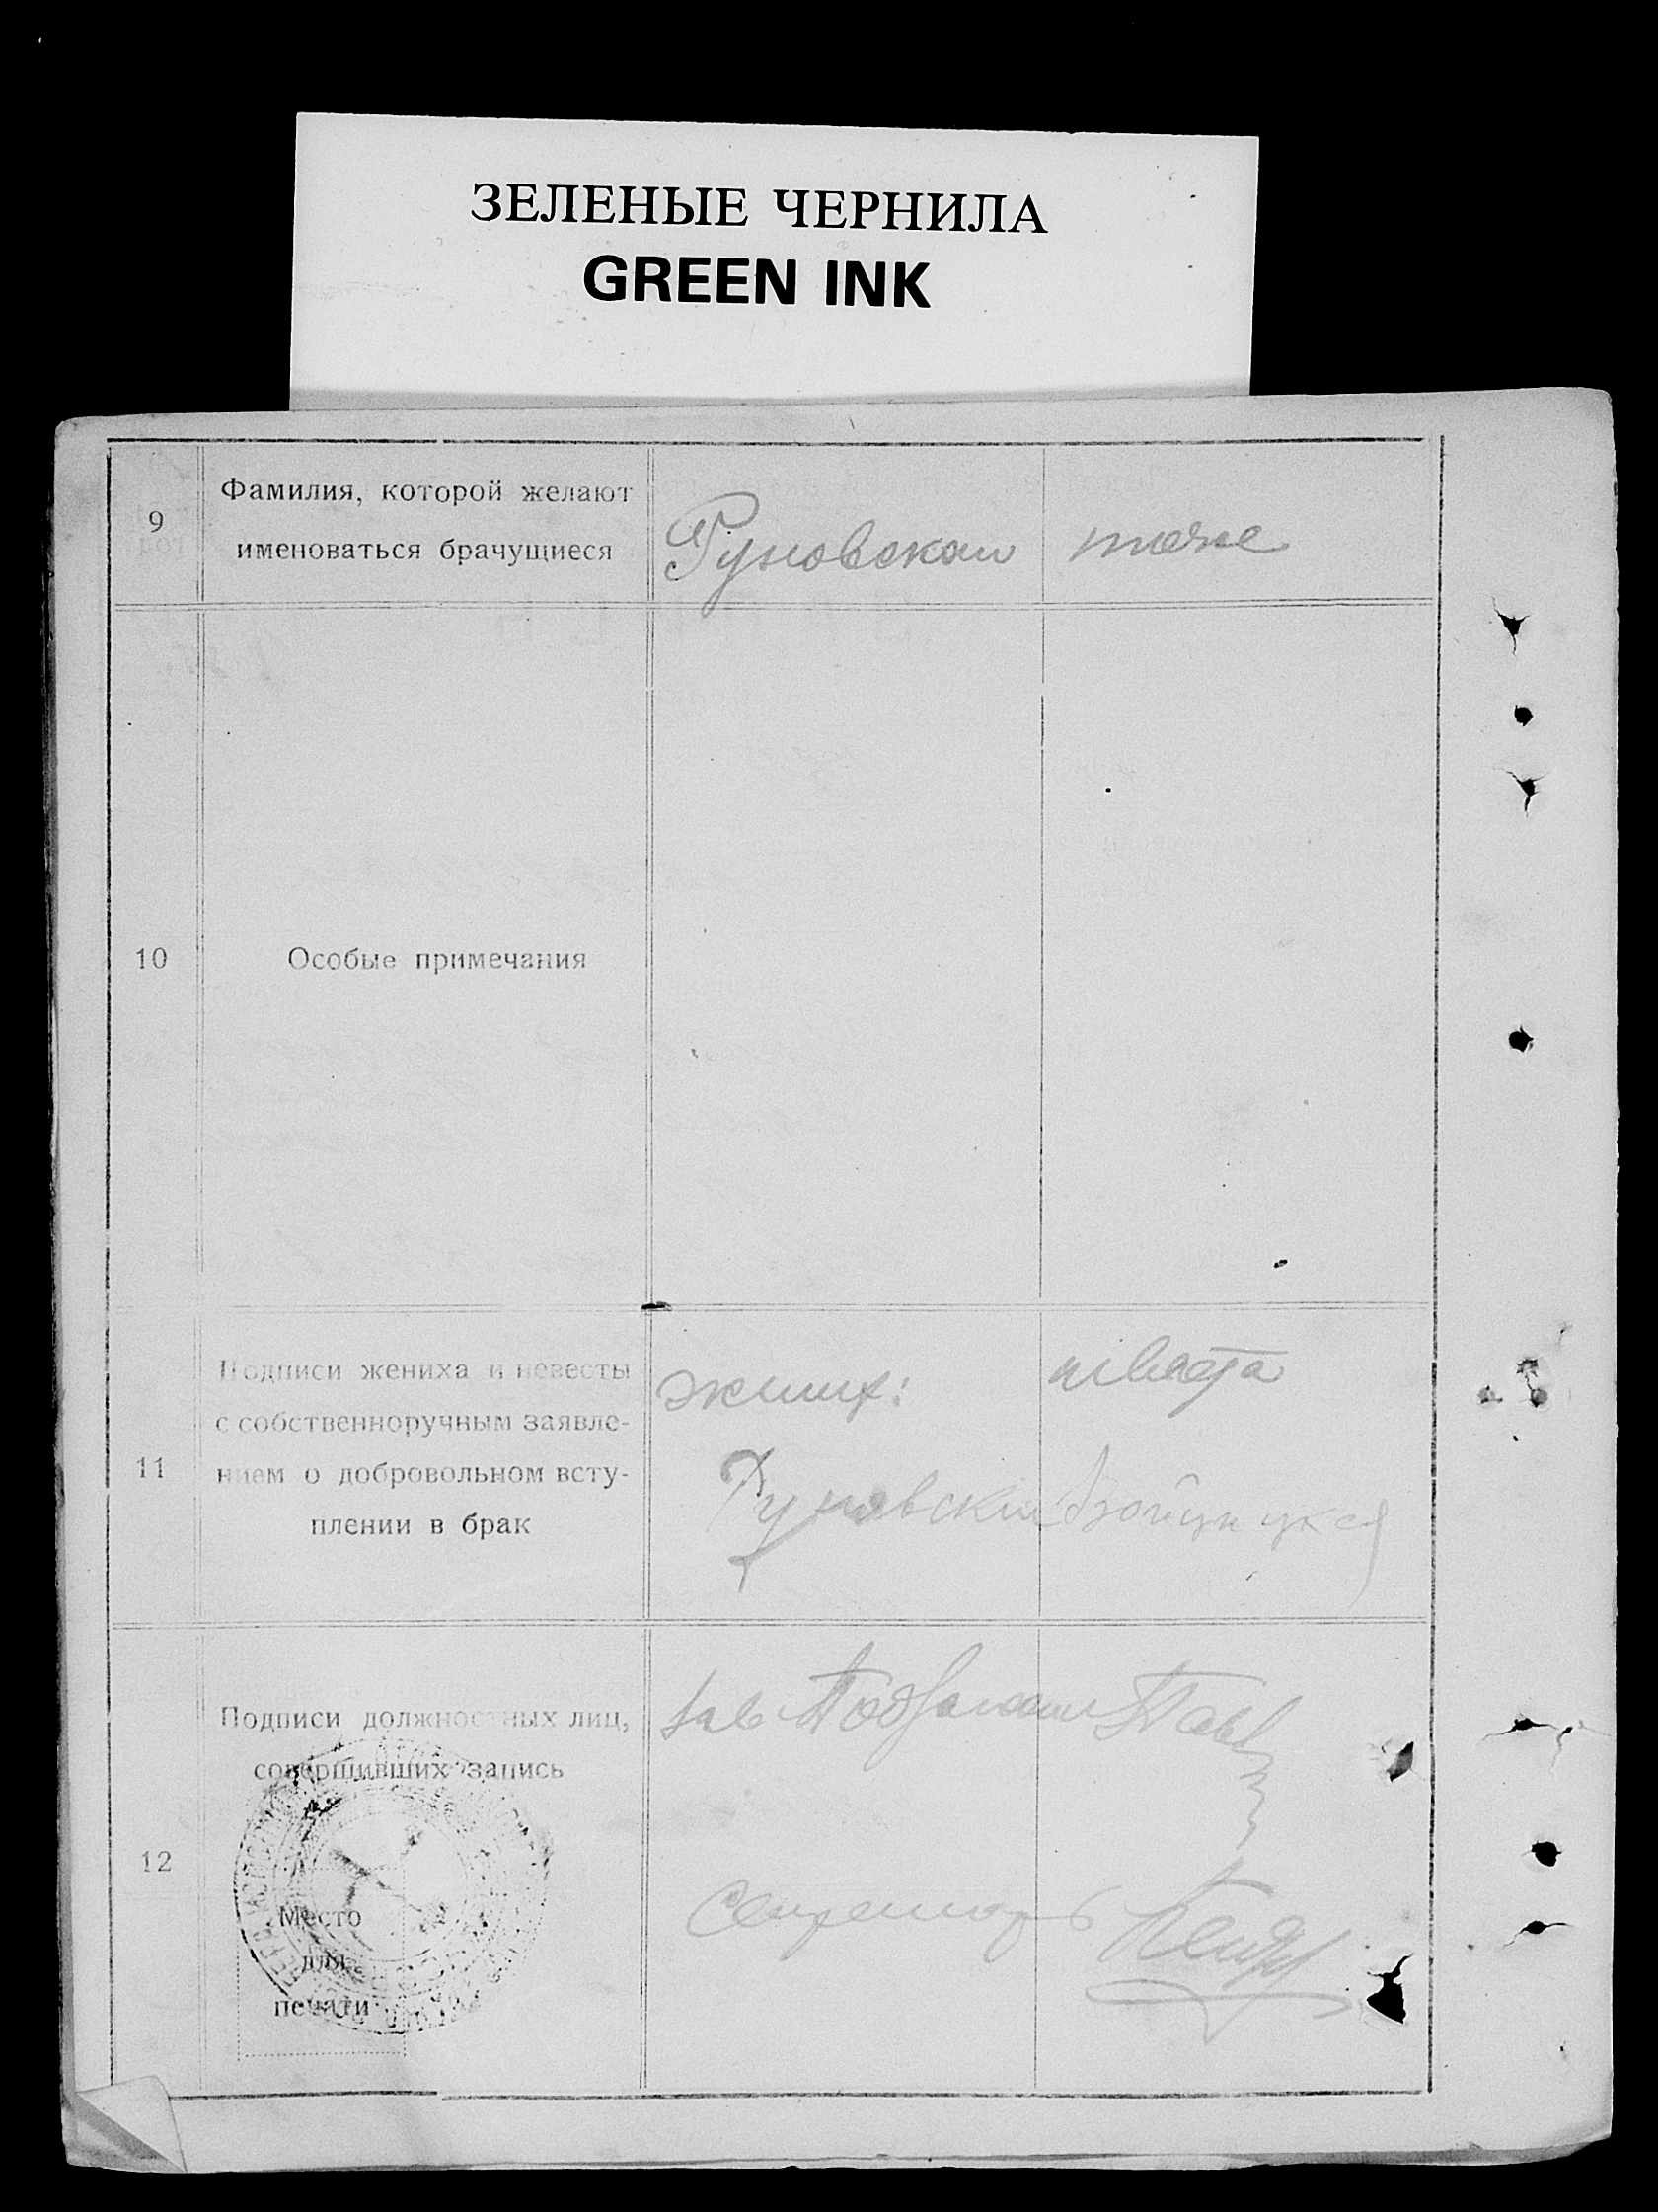 ЗЕЛЕНЫЕ ЧЕРНИЛА
GREEN INK
9
Фамилия, которой желают
именоваться брачущиеся
тоже
10
Особые примечания
11
Подписи жениха и невесты
с собственноручным заявле-
нием о добровольном всту-
плении в брак
жених:
невеста
12
Подписи должностных лиц,
совершивших запись
зав
Секретарь
Место
для
печати